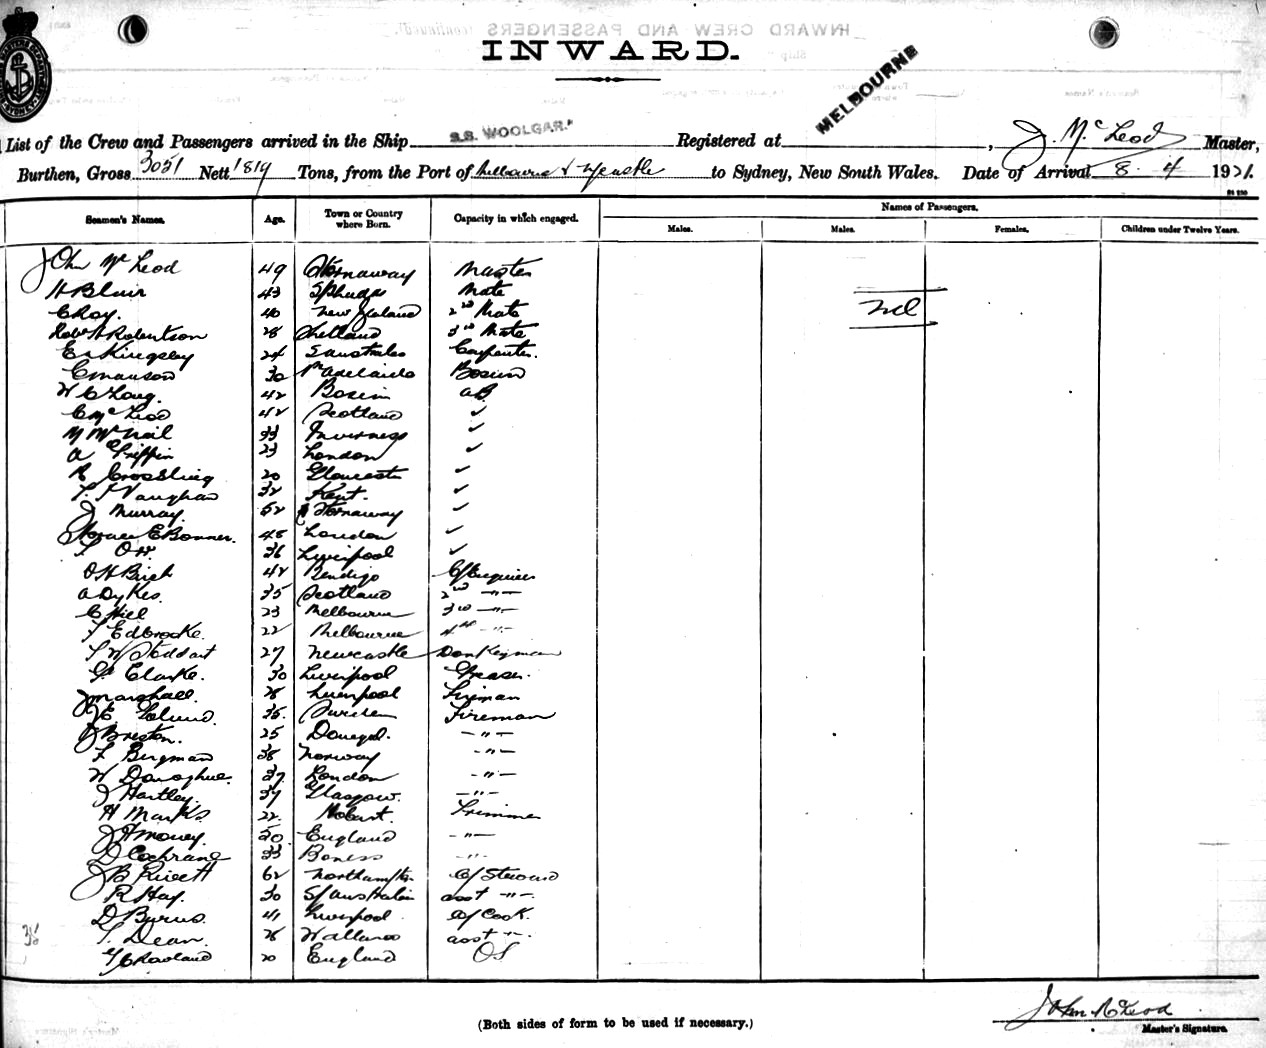 INWARD.
MELBOURNE
List of the Crew and Passengers arrived in the Ship S.S. WOOLGAR. Registered at , J. McLeod Master,
Burthen, Gross 3051 Nett 1819 Tons, from the Port of Melbourne & Ncastle to Sydney, New South Wales. Date of Arrival 8. 4 1921.
Seamen's Names. Age. Town or Country where Born. Capacity in which engaged. Names of Passengers.
Males. Males. Females. Children under Twelve Years.
John McLeod 49 Stornaway Master
H Blair 43 Mate
C Roy. 40 New Zealand 2nd Mate
Robt H Robertson 28 Shetland 3rd Mate
E Kingsley 24 S Australia Carpenter.
C Manson 30 Pt Adelaide Bosun
W C Long. 42 AB
C McLeod 42 Scotland ✓
M McNeil 33 Inverness ✓
A Griffin 23 London ✓
R Crossling 20 Gloucester ✓
T. F Vaughan 32 Kent. ✓
J Murray. 52 Stornaway ✓
Horace E Bonner. 48 London ✓
T Orr. 36 Liverpool ✓
O H Birch 42 Bendigo C/Engineer
A Dykes. 35 Scotland 2nd -"-
C Hill 23 Melbourne 3rd -"-
T Edbrooke. 22 Melbourne 4th -"-
T W Stoddart 27 Newcastle Donkeyman
G Clarke. 30 Liverpool Greaser.
J Marshall. 28 Liverpool Fireman
35. Sweden Fireman
J Breslin. 25 Donegal. -"-
F Bergman 38 Norway -"-
W Donoghue. 37 London -"-
J Hartley. 37 Glasgow. -"-
H Marks. 22. Hobart. Trimmer
J H Mowey. 50. England -"-
D Cochrane 33 Boness -"-
J B Rivett 62 Northampton C/Steward
R Hay. 30 S/Australia asst -"-
D Burns. 41 Liverpool C/Cook.
T. Dean. 28 Wallaroo asst -"-
Rowland 20 England OS
Nil
(Both sides of form to be used if necessary.)
John McLeod
Master's Signature.